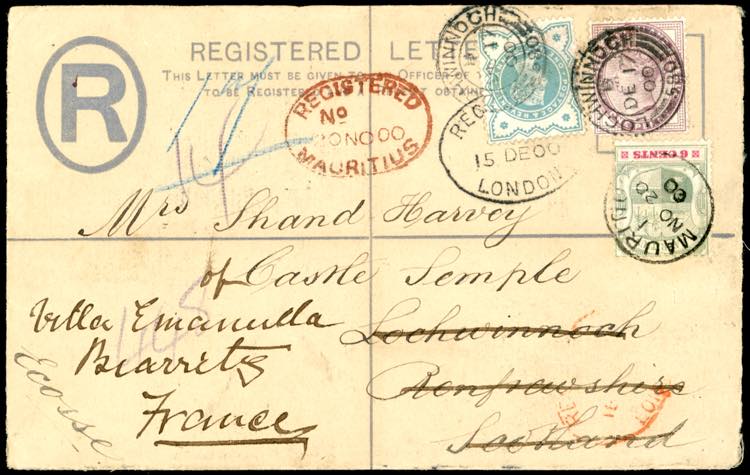 REGISTERED LETTER
THIS LETTER MUST BE GIVEN TO OFFICER OF
TO BE REGISTERED OBTAINED
R
REGISTERED
No
20 NO 00
MAURITIUS
LOCHWINNOCH
LOCHWINNOCH
DE 17
00
580
REGISTERED
15 DE 00
LONDON
6 CENTS
MAURITIUS
NO 20
00
14
Mrs Shand Harvey
of Castle Semple
Lochwinnoch
Renfrewshire
Scotland
Villa Emanuella
Biarritz
France
Ecosse